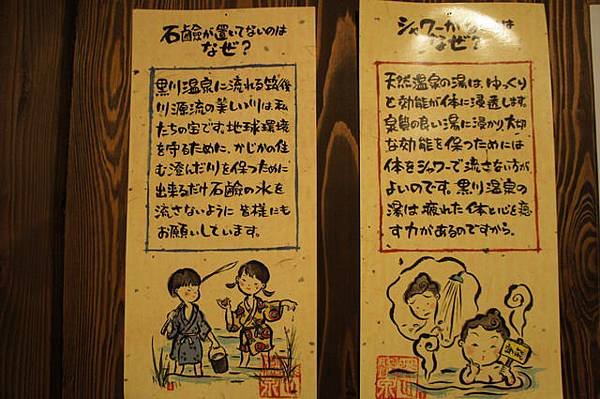 石鹸が置いてないのは
なぜ?
黒川温泉に流れる筑後
川源流の美しい川は、私
たちの宝です。地球環境
を守るために、かじかの住
む澄んだ川を保つために
出来るだけ石鹸の水を
流さないように 皆様にも
お願いしています。
シャワーが
は
なぜ?
天然温泉の湯は、ゆっくり
と効能が体に浸透します。
泉質の良い湯に浸かり、大切
な効能を保つためには
体をシャワーで流さない方が
よいのです。黒川温泉の
湯は疲れた体と心を癒
す力があるのですから。